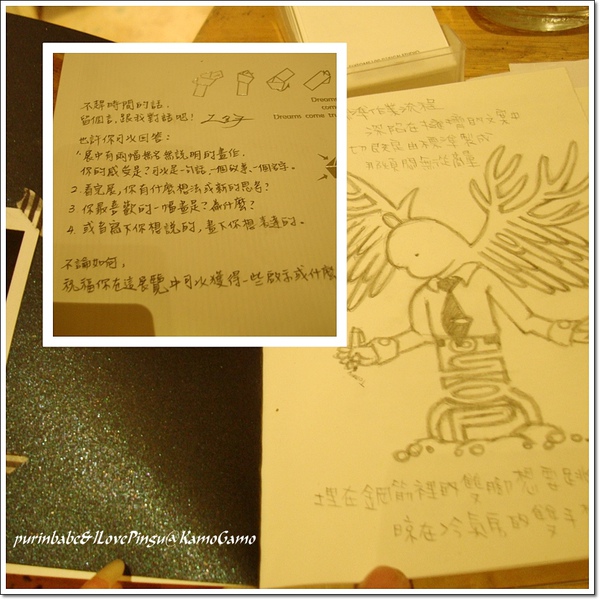 Dreams
com
Dreams come tr
不趕時間的話，
留個言，跟我對話吧！
也許你可以回答：
1. 展中有兩幅無名無說明的畫作，
你的感受是？可以是一句話、一個故事、一個名字。
2. 看完展，你有什麼想法或新的思考？
3. 你最喜歡的一幅畫是？為什麼？
4. 或者寫下你想說的，畫下你想表達的。
不論如何，
祝福你在這展覽中可以獲得一些啟示或什麼
作業流程
深陷在擁擠的文案中
埋在鋼筋裡的雙腳想要
晾在冷氣房的雙手
purinbabe&ILovePingu@KamoGamo